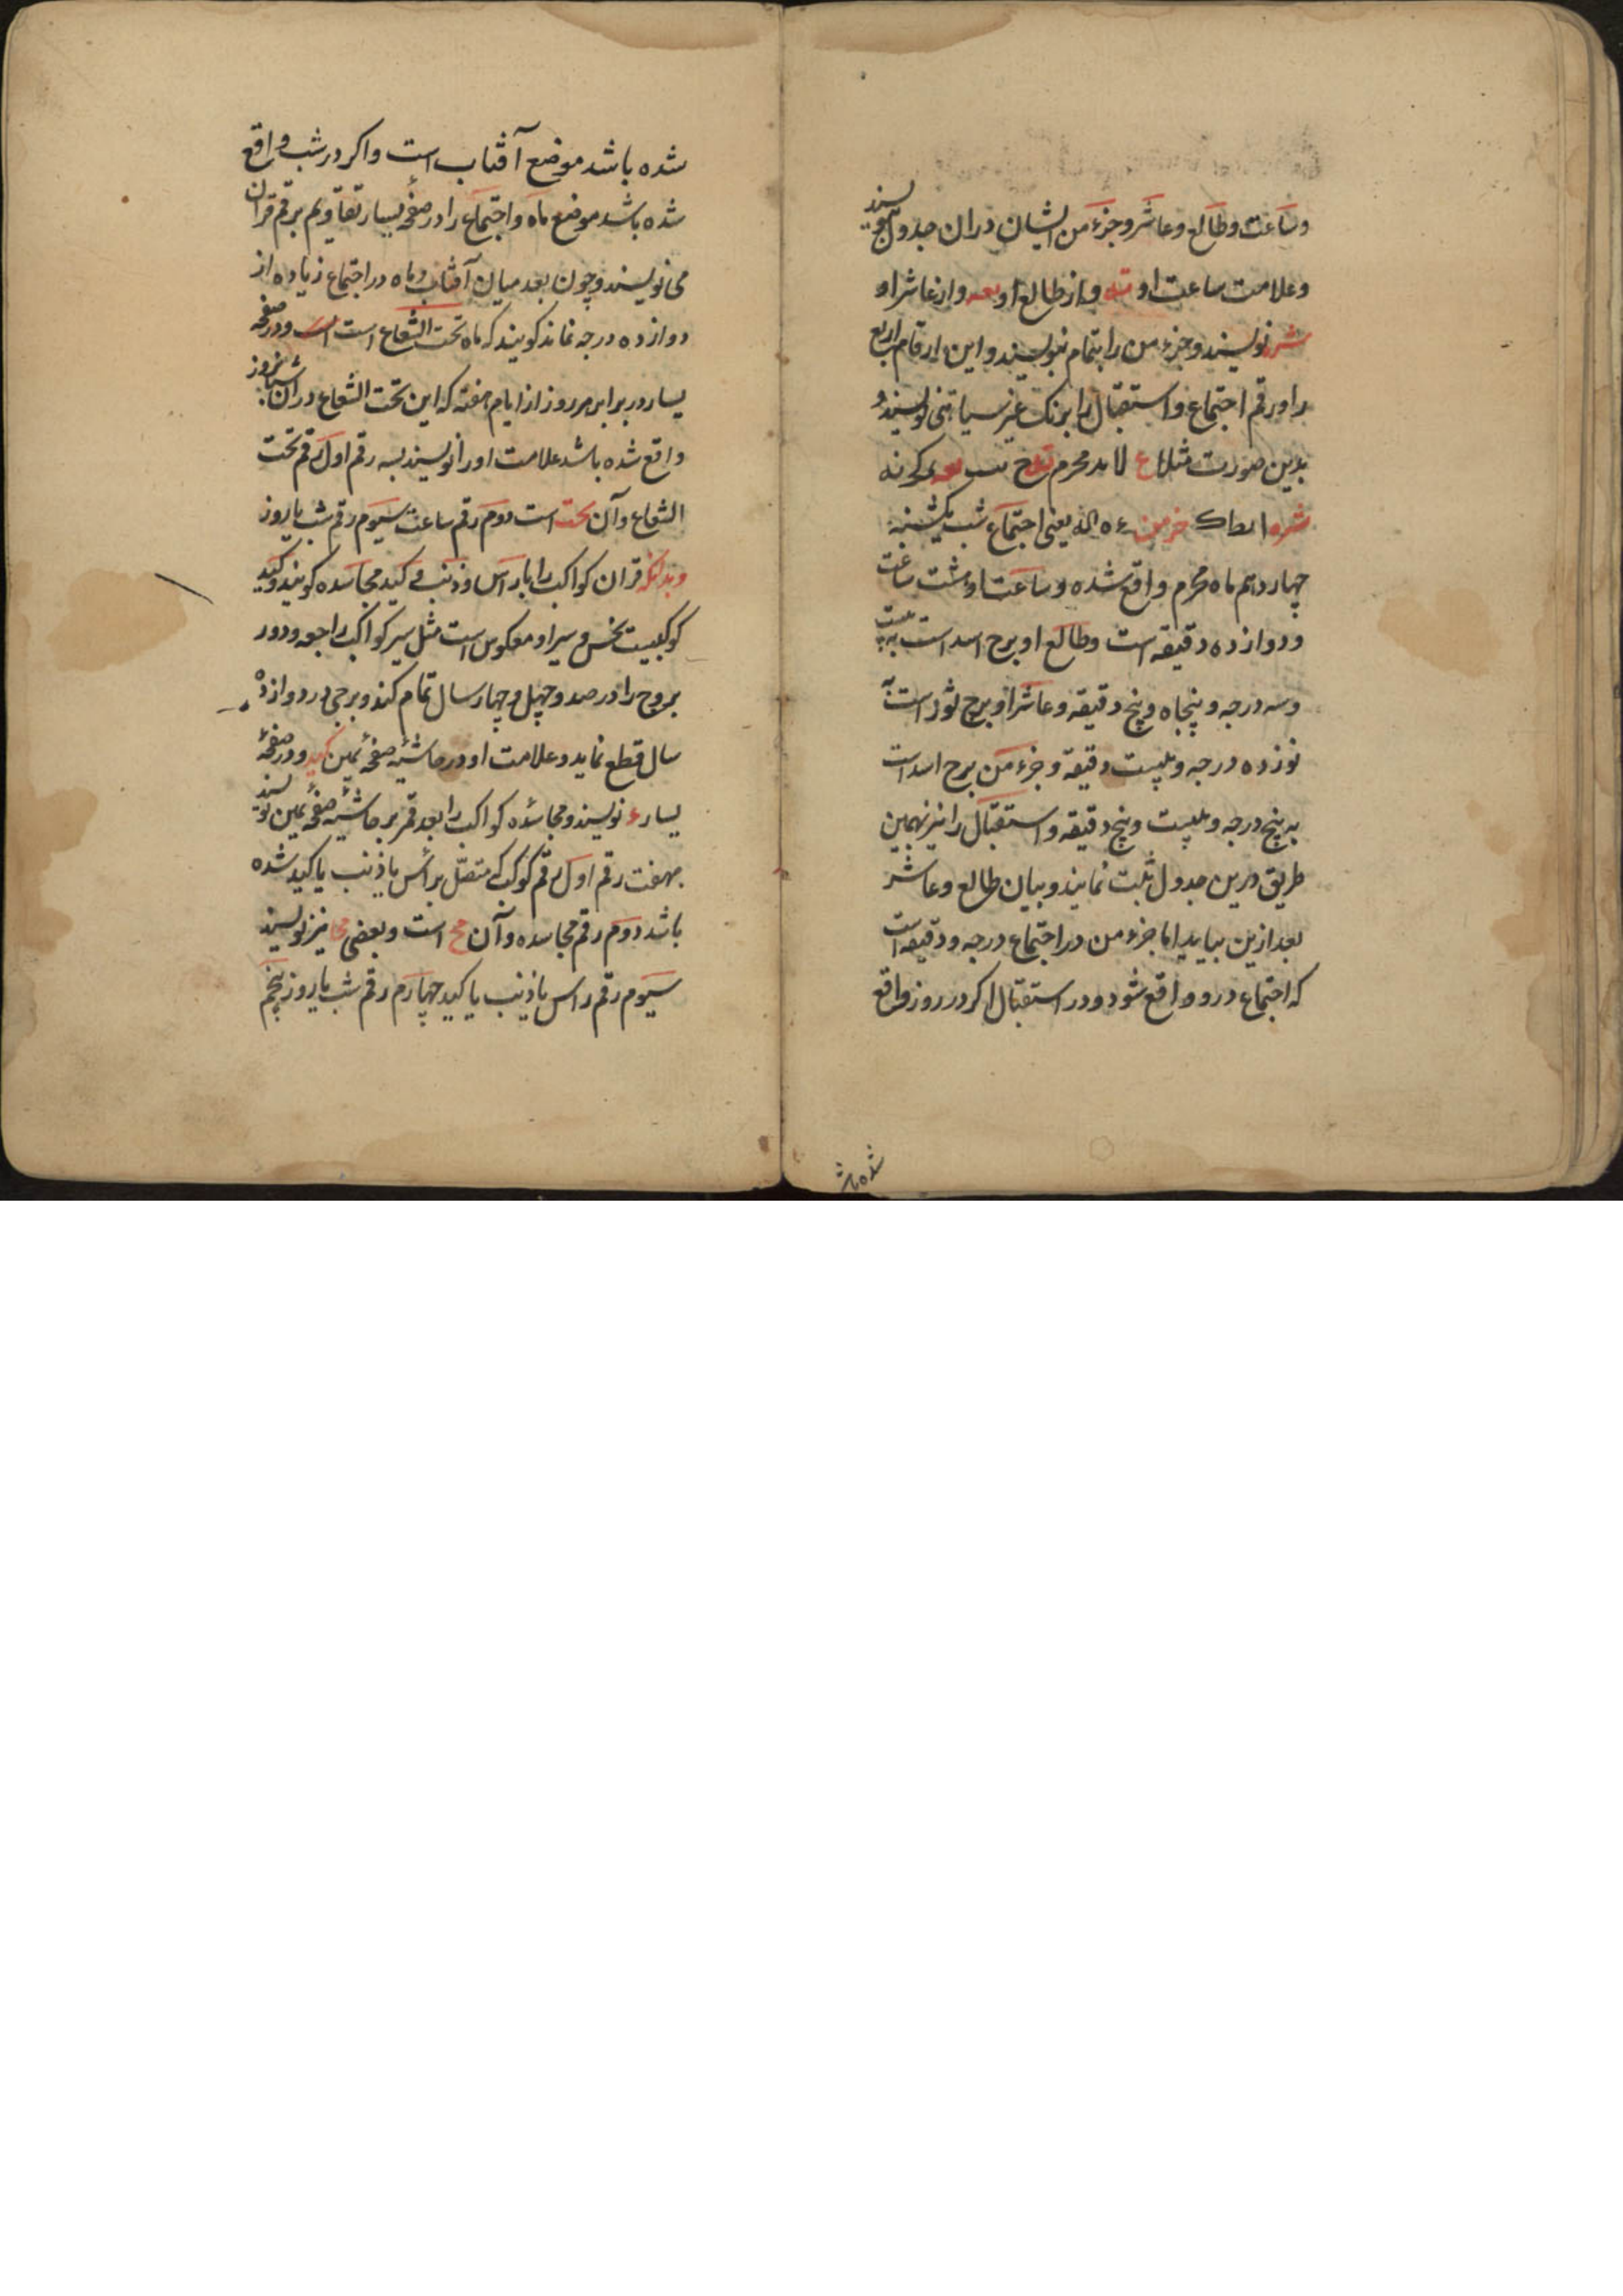 وساعت وطالع وعاشر وجزء من ایشان دران جدول بنویسند
وعلامت ساعت او واز طالع او واز عاشر او
شر نویسند وجزء من را بتمام بنویسند واین ارقام اربع
را ورقم اجتماع واستقبال را برنک غیر سیاهی نویسند و
بدین صورت مثلا ع لا ید محرم
شره ا یط ک خر من ء ه الد یعنی اجتماع شب یکشنبه
چهاردهم ماه محرم واقع شده وساعت او شت ساعت
ودوازده دقیقه است وطالع او برج اسد است به بیست
وسه درجه وپنجاه وپنج دقیقه وعاشر او برج ثور است به
نوزده درجه وبیست دقیقه وجزء من برج اسد است
به پنج درجه وبیست وپنج دقیقه واستقبال را نیز بهمین
طریق درین جدول ثبت نمایند وبیان طالع وعاشر
بعد ازین بیاید اما جزء من در اجتماع درجه ودقیقه است
که اجتماع درو واقع شود ودر استقبال اکر در روز واقع
شده باشد
شده باشد موضع آفتاب است واکر در شب واقع
شده باشد موضع ماه واجتماع را در صفحهٔ یسار تقاویم برقم قران
می نویسند وچون بعد میان آفتاب وماه در اجتماع زیاده از
دوازده درجه نماند کویند که ماه تحت الشعاع است ودر صفحه
یسار در برابر هر روز از ایام هفته که این تحت الشعاع دران شبانروز
واقع شده باشد علامت اورا نویسند بسه رقم اول رقم تحت
الشعاع وآن تحت است دوم رقم ساعت سیوم رقم شب یا روز
وبدانکه قران کواکب را با راس وذنب وکید مجاسده کویند وکید
کوکبیست نحس وسیر او معکوس است مثل سیر کواکب راجعه ودور
بروج را در صد وچهل وچهار سال تمام کند وبرجی در دوازده
سال قطع نماید وعلامت او در حاشیهٔ صفحهٔ یمین کید ودر صفحهٔ
یسار ء نویسند ومجاسدهٔ کواکب را بعد قمر بر حاشیهٔ صفحهٔ یمین نویسند
بهفت رقم اول رقم کوکب که متصل براس یا ذنب یا کید شده
باشد دوم رقم مجاسده وآن مج است وبعضی مجا نیز نویسند
سیوم رقم راس یا ذنب یا کید چهارم رقم شب یا روز پنجم